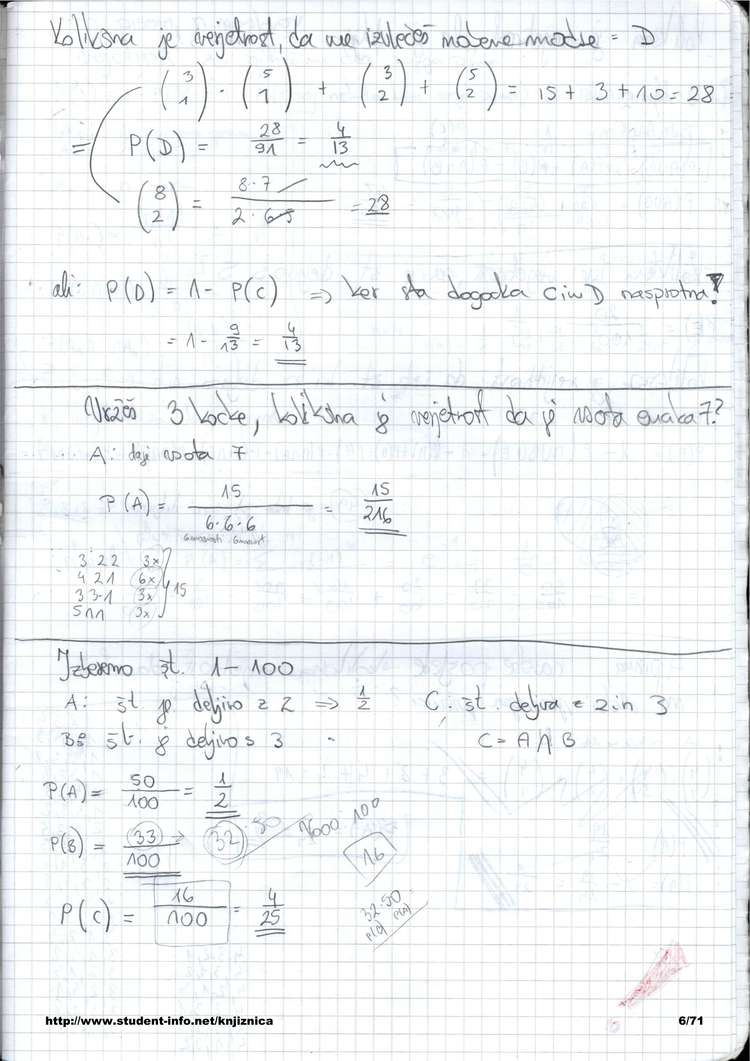 Kolikšna je verjetnost, da ne izvlečeš nobene modre = D
(3 1) · (5 1) + (3 2) + (5 2) = 15 + 3 + 10 = 28
=> P(D) = 28/91 = 4/13
(8 2) = 8·7 / 2· = 28
ali: P(D) = 1 - P(C) => ker sta dogodka C in D nasprotna!
= 1 - 9/13 = 4/13
Vržeš 3 kocke, kolikšna je verjetnost da je vsota enaka 7?
A: daje vsota 7
P(A) = 15 / 6·6·6 = 15/216
3 2 2 3x
4 2 1 6x
3 3 1 3x
5 1 1 3x
15
Izberemo št. 1 - 100
A: št. je deljivo z 2 => 1/2 C: št. deljiva z 2 in 3
B: št. je deljivo s 3 C = A ∩ B
P(A) = 50/100 = 1/2
P(B) = 33/100 32 · 50 / 1600 100
16
P(C) = 16/100 = 4/25
32·50
P(B) P(A)
http://www.student-info.net/knjiznica 6/71